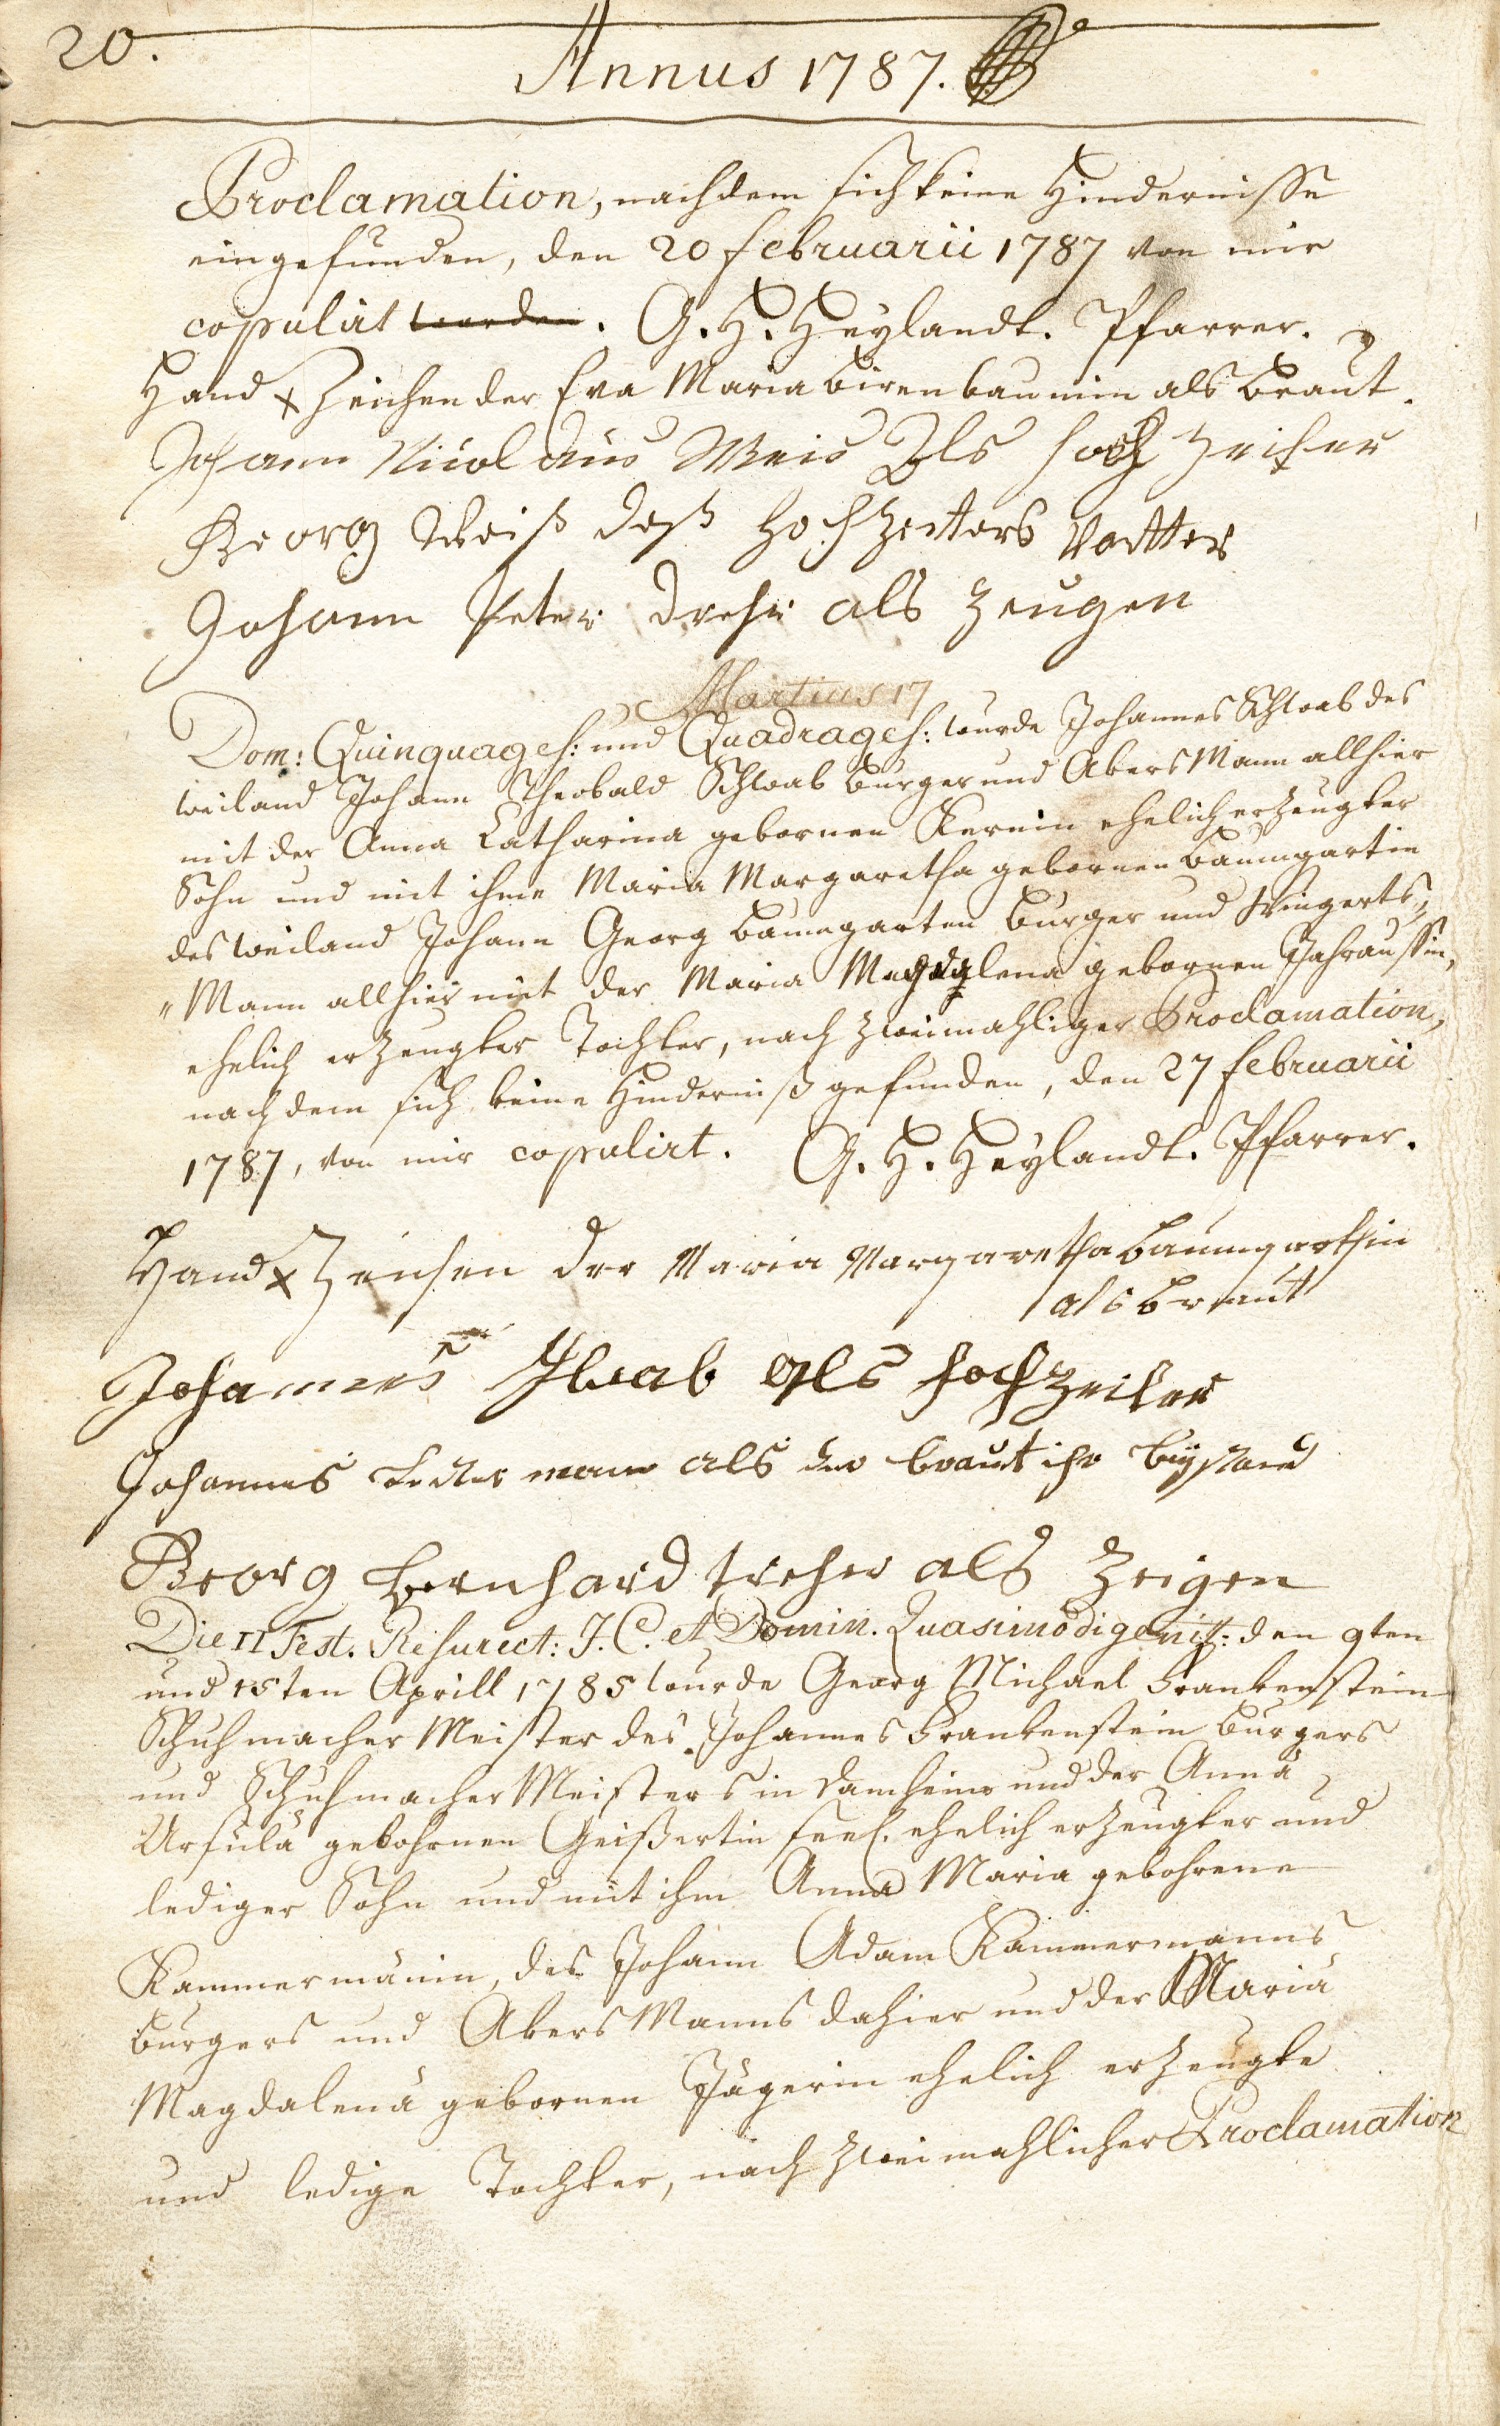 20.
Annus 1787.
Proclamation, nachdem sich keine Hindernisse
eingefunden, den 20 februarii 1787 von mir
copulirt worden. G. H. Heylandt. Pfarrer.
Hand x Zeichen der Eva Maria Birenbaumin als Braut.
Johann Nicolaus Weis Als hoch zeiter
Georg Weiß deß hochzeiters Vatter
Johann Peter Dreher als Zeugen
Martius 17
Dom: Quinquages: und Quadrages: wurde Johannes Schwab des
weiland Johann Theobald Schwab Burger und AkersMann allhier
mit der Anna Catharina gebornen Kernin ehelich erzeugter
Sohn und mit ihme Maria Margaretha gebornen Baumgartin
des weiland Johann Georg Baumgarten Burger und Wingerts„
„Mann allhier mit der Maria Magdalena gebornen Jahraussin,
ehelich erzeugter Tochter, nach zweimahliger Proclamation,
nach dem sich keine Hinderniß gefunden, den 27 februarii
1787, von mir copulirt. G. H. Heylandt. Pfarrer.
Hand x Zeichen der Maria Margaretha Baumgarthin
als Braut
Johannes Schwab als hochzeiter
Johannes mann als der braut ihr beystand
Georg Bernhard treher als Zeigen
Die II Fest. Resurect: J. C. et Domin. Quasimodigenit: den 9ten
und 15ten Aprill 1785 wurde Georg Michael Frankenstein
Schuhmacher Meister des Johannes Frankenstein Burgers
und Schuhmacher Meisters in Damheim und der Anna
Ursula gebohrnen Geißertin seel. ehelich erzeugter und
lediger Sohn und mit ihm Anna Maria gebohrene
Kammermänin, des Johann Adam Kammermanns
Burgers und AkersManns dahier und der Maria
Magdalena gebornen Jägerin ehelich erzeugte
und ledige Tochter, nach zweimahlicher Proclamation